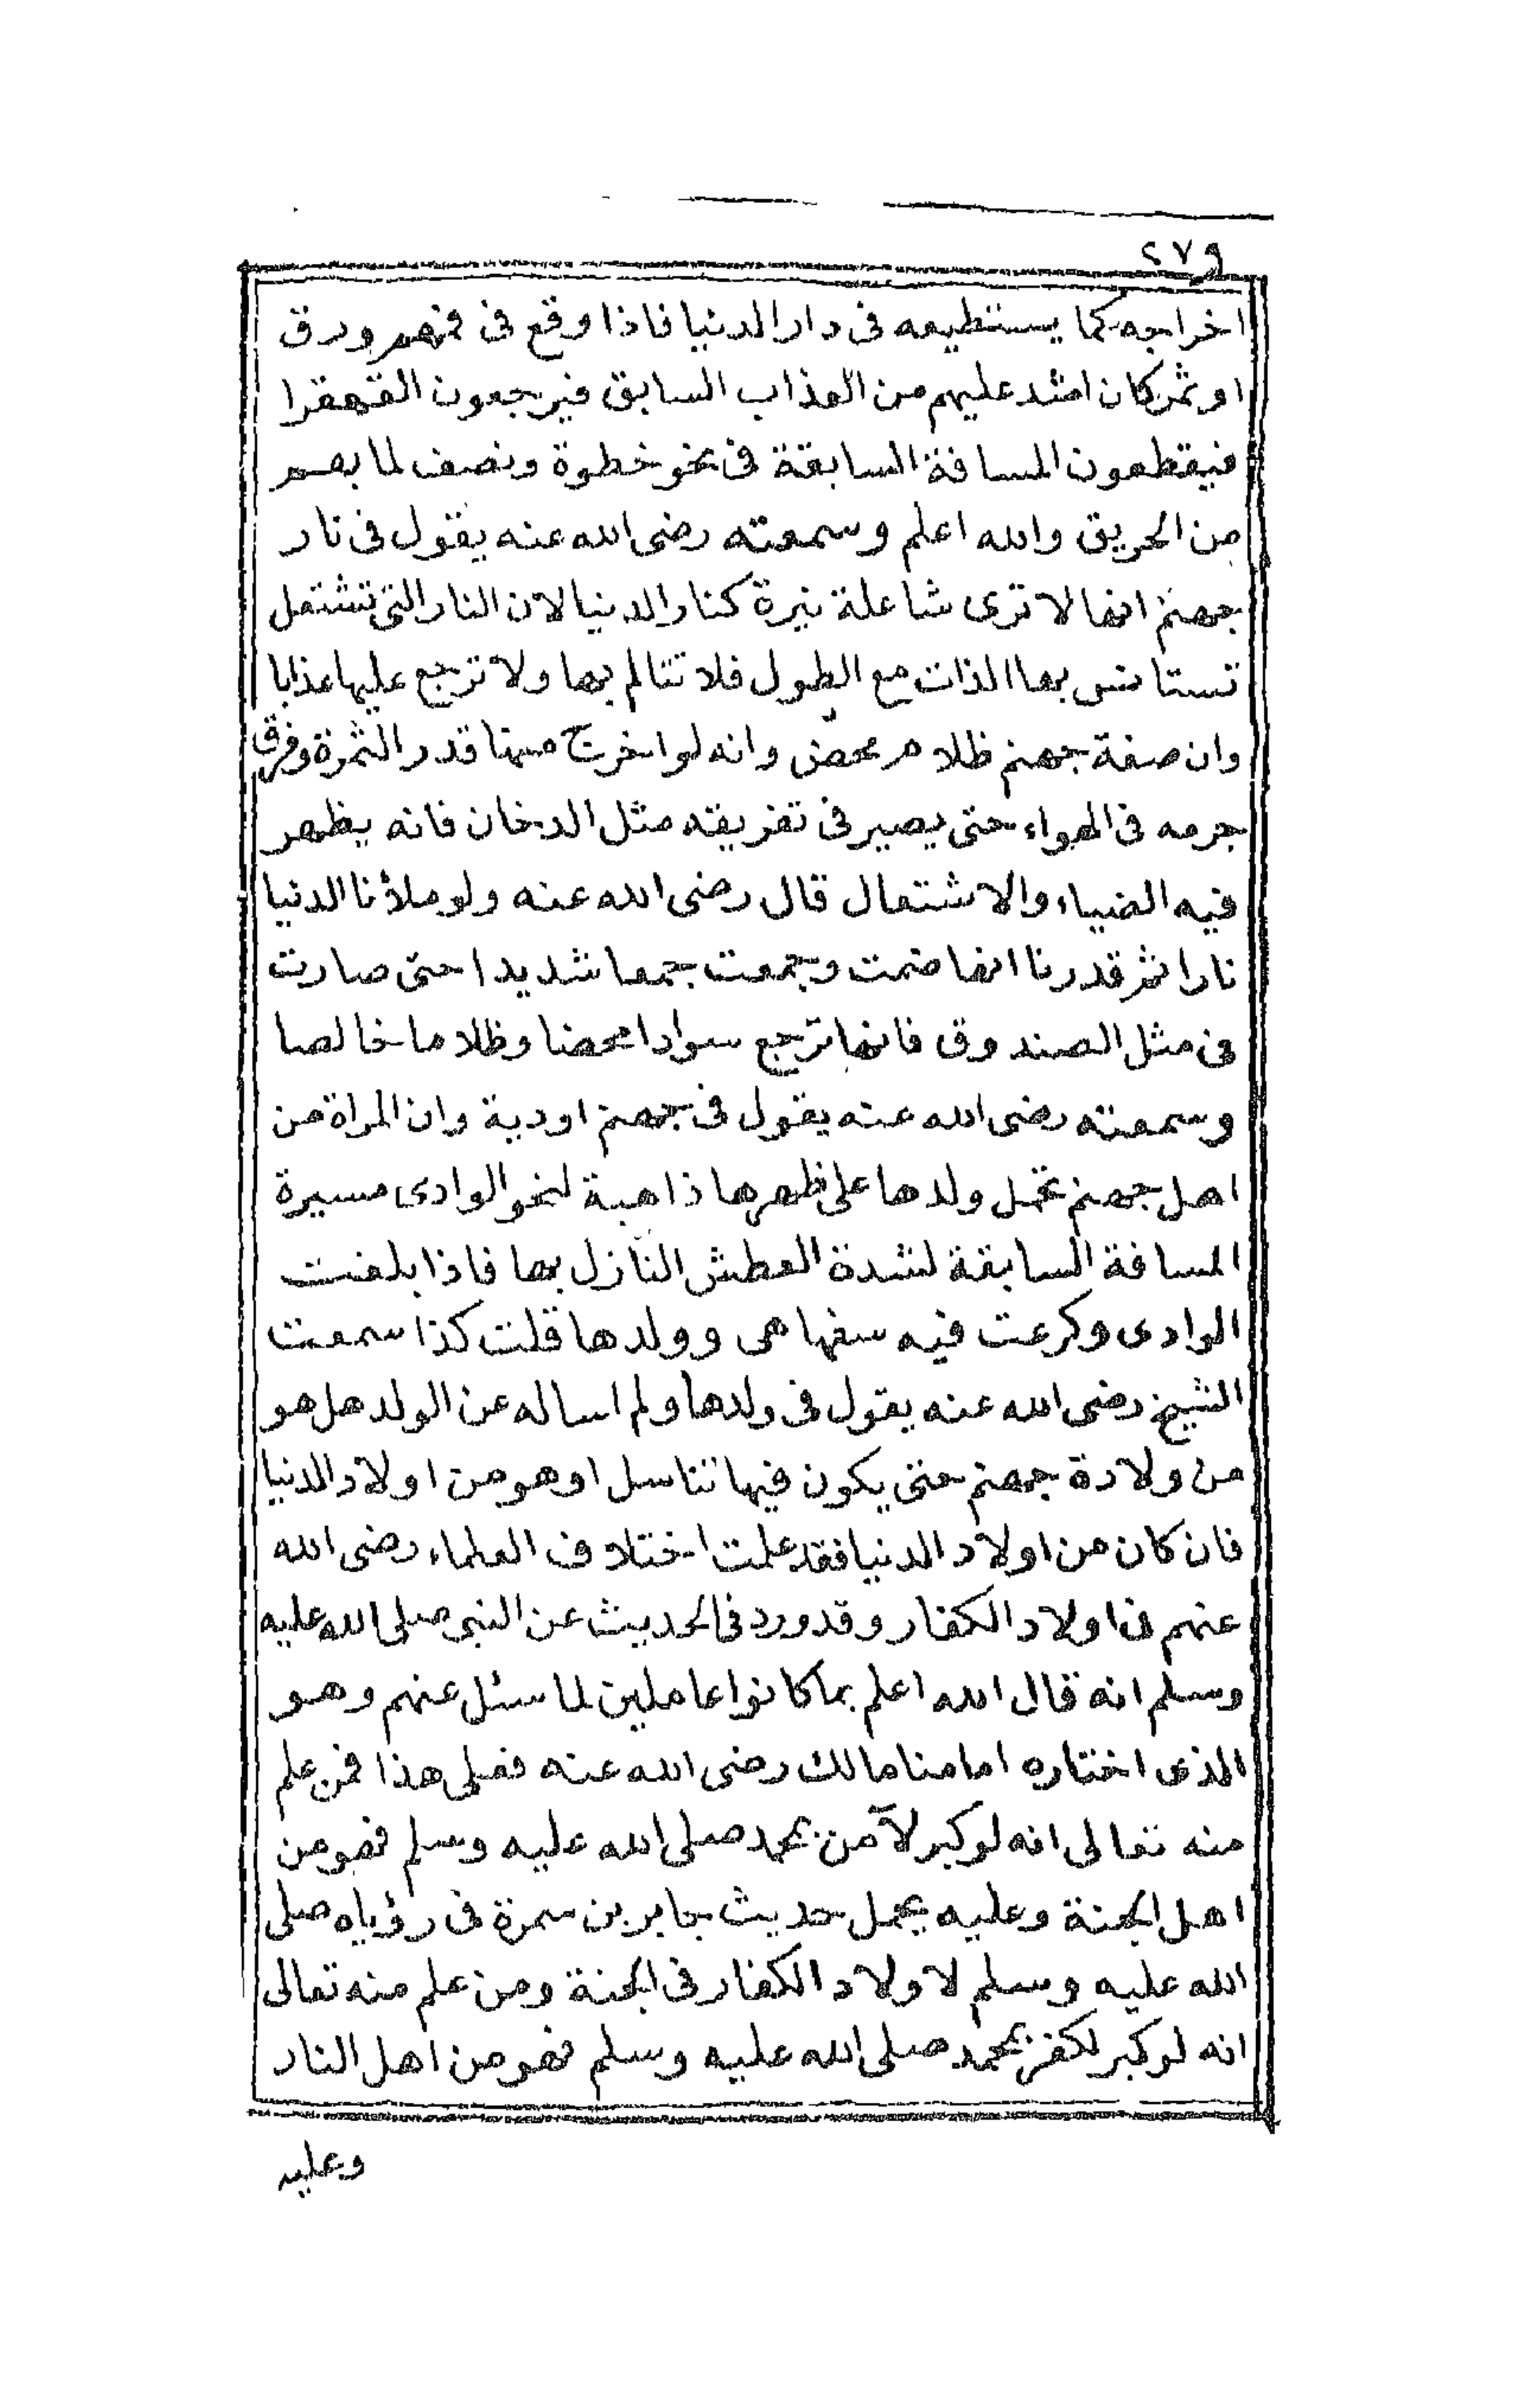 ٢٧٩
اخراجه كما يستطيعه فى دار الدنيا فاذا وقع فى فمهم ورق
او ثمر كان اشد عليهم من العذاب السابق فيرجعون القهقرا
فيقطعون المسافة السابقة فى نحو خطوة ونصف لما بهم
من الحريق والله اعلم وسمعته رضى الله عنه يقول فى نار
جهنم انها لا ترى شاعلة نيرة كنار الدنيا لان النار التى تشتعل
تستانس بها الذات مع الطول فلا تتالم بها ولا ترجع عليها عذابا
وان صفة جهنم ظلام محض وانه لو اخرج منها قدر الثمرة وفرق
جرمه فى الهواء حتى يصير فى تفريقه مثل الدخان فانه يظهر
فيه الضياء والاشتعال قال رضى الله عنه ولو ملأنا الدنيا
نارا ثم قدرنا انها ضمت وجمعت جمعا شديدا حتى صارت
فى مثل الصندوق فانها ترجع سوادا محضا وظلاما خالصا
وسمعته رضى الله عنه يقول فى جهنم اودية وان المراة من
اهل جهنم تحمل ولدها على ظهرها ذاهبة لنحو الوادى مسيرة
المسافة السابقة لشدة العطش النازل بها فاذا بلغت
الوادى وكرعت فيه سفها هى وولدها قلت كذا سمعت
الشيخ رضى الله عنه يقول فى ولدها ولم اساله عن الولد هل هو
من ولادة جهنم حتى يكون فيها تناسل او هو من اولاد الدنيا
فان كان من اولاد الدنيا فقد علمت اختلاف العلماء رضى الله
عنهم فى اولاد الكفار وقد ورد فى الحديث عن النبى صلى الله عليه
وسلم انه قال الله اعلم بما كانوا عاملين لما سئل عنهم وهو
الذى اختاره امامنا مالك رضى الله عنه فعلى هذا فمن علم
منه تعالى انه لو كبر لآمن بمحمد صلى الله عليه وسلم فهو من
اهل الجنة وعليه يحمل حديث جابر بن سمرة فى رؤياه صلى
الله عليه وسلم لاولاد الكفار فى الجنة ومن علم منه تعالى
انه لو كبر لكفر بمحمد صلى الله عليه وسلم فهو من اهل النار
وعليه